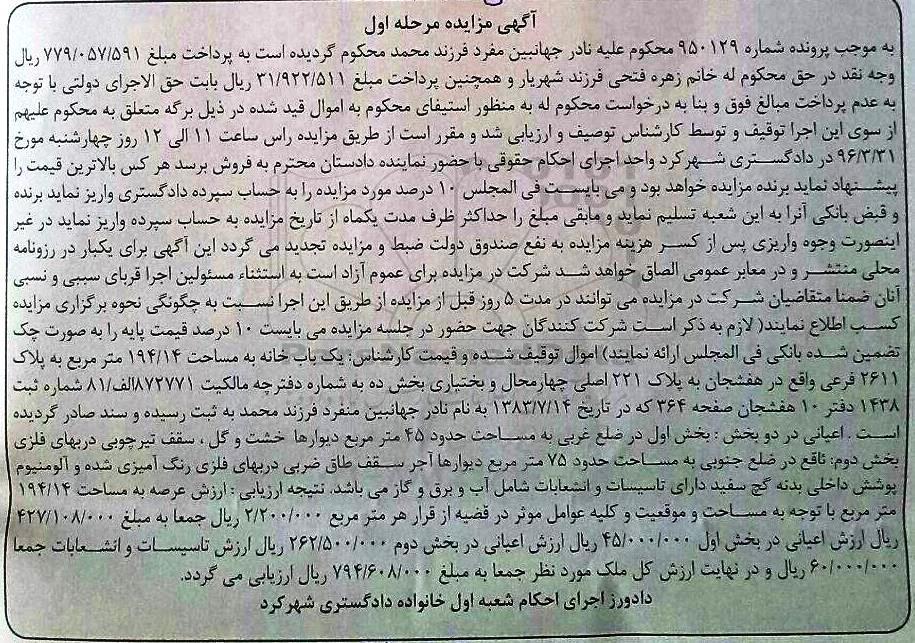 آگهی مزایده مرحله اول
به موجب پرونده شماره ۹۵۰۱۲۹ محکوم علیه نادر جهانبین مفرد فرزند محمد محکوم گردیده است به پرداخت مبلغ ۷۷۹/۰۵۷/۵۹۱ ریال
وجه نقد در حق محکوم له خانم زهره فتحی فرزند شهریار و همچنین پرداخت مبلغ ۳۱/۹۲۲/۵۱۱ ریال بابت حق الاجرای دولتی با توجه
به عدم پرداخت مبالغ فوق و بنا به درخواست محکوم له به منظور استیفای محکوم به اموال قید شده در ذیل برگه متعلق به محکوم علیهم
از سوی این اجرا توقیف و توسط کارشناس توصیف و ارزیابی شد و مقرر است از طریق مزایده راس ساعت ۱۱ الی ۱۲ روز چهارشنبه مورخ
۹۶/۳/۳۱ در دادگستری شهرکرد واحد اجرای احکام حقوقی با حضور نماینده دادستان محترم به فروش برسد هر کس بالاترین قیمت را
پیشنهاد نماید برنده مزایده خواهد بود و می بایست فی المجلس ۱۰ درصد مورد مزایده را به حساب سپرده دادگستری واریز نماید برنده
و قبض بانکی آنرا به این شعبه تسلیم نماید و مابقی مبلغ را حداکثر ظرف مدت یکماه از تاریخ مزایده به حساب سپرده واریز نماید در غیر
اینصورت وجوه واریزی پس از کسر هزینه مزایده به نفع صندوق دولت ضبط و مزایده تجدید می گردد این آگهی برای یکبار در رزونامه
محلی منتشر و در معابر عمومی الصاق خواهد شد شرکت در مزایده برای عموم آزاد است به استثناء مسئولین اجرا قربای سببی و نسبی
آنان ضمنا متقاضیان شرکت در مزایده می توانند در مدت ۵ روز قبل از مزایده از طریق این اجرا نسبت به چگونگی نحوه برگزاری مزایده
کسب اطلاع نمایند( لازم به ذکر است شرکت کنندگان جهت حضور در جلسه مزایده می بایست ۱۰ درصد قیمت پایه را به صورت چک
تضمین شده بانکی فی المجلس ارائه نمایند) اموال توقیف شده و قیمت کارشناس: یک باب خانه به مساحت ۱۹۴/۱۴ متر مربع به پلاک
۲۶۱۱ فرعی واقع در هفشجان به پلاک ۲۲۱ اصلی چهارمحال و بختیاری بخش ده به شماره دفترچه مالکیت ۸۷۲۷۷۱الف/۸۱ شماره ثبت
۱۴۳۸ دفتر ۱۰ هفشجان صفحه ۳۶۴ که در تاریخ ۱۳۸۳/۷/۱۴ به نام نادر جهانبین منفرد فرزند محمد به ثبت رسیده و سند صادر گردیده
است . اعیانی در دو بخش : بخش اول در ضلع غربی به مساحت حدود ۴۵ متر مربع دیوارها خشت و گل ، سقف تیرچوبی دربهای فلزی
بخش دوم: ثاقع در ضلع جنوبی به مساحت حدود ۷۵ متر مربع دیوارها آجر سقف طاق ضربی دربهای فلزی رنگ آمیزی شده و آلومنیوم
پوشش داخلی بدنه گچ سفید دارای تاسیسات و انشعابات شامل آب و برق و گاز می باشد. نتیجه ارزیابی : ارزش عرصه به مساحت ۱۹۴/۱۴
متر مربع با توجه به مساحت و موقعیت و کلیه عوامل موثر در قضیه از قرار هر متر مربع ۲/۲۰۰/۰۰۰ ریال جمعا به مبلغ ۴۲۷/۱۰۸/۰۰۰
ریال ارزش اعیانی در بخش اول ۴۵/۰۰۰/۰۰۰ ریال ارزش اعیانی در بخش دوم ۲۶۲/۵۰۰/۰۰۰ ریال ارزش تاسیسات و انشعابات جمعا
۶۰/۰۰۰/۰۰۰ ریال و در نهایت ارزش کل ملک مورد نظر جمعا به مبلغ ۷۹۴/۶۰۸/۰۰۰ ریال ارزیابی می گردد.
دادورز اجرای احکام شعبه اول خانواده دادگستری شهرکرد